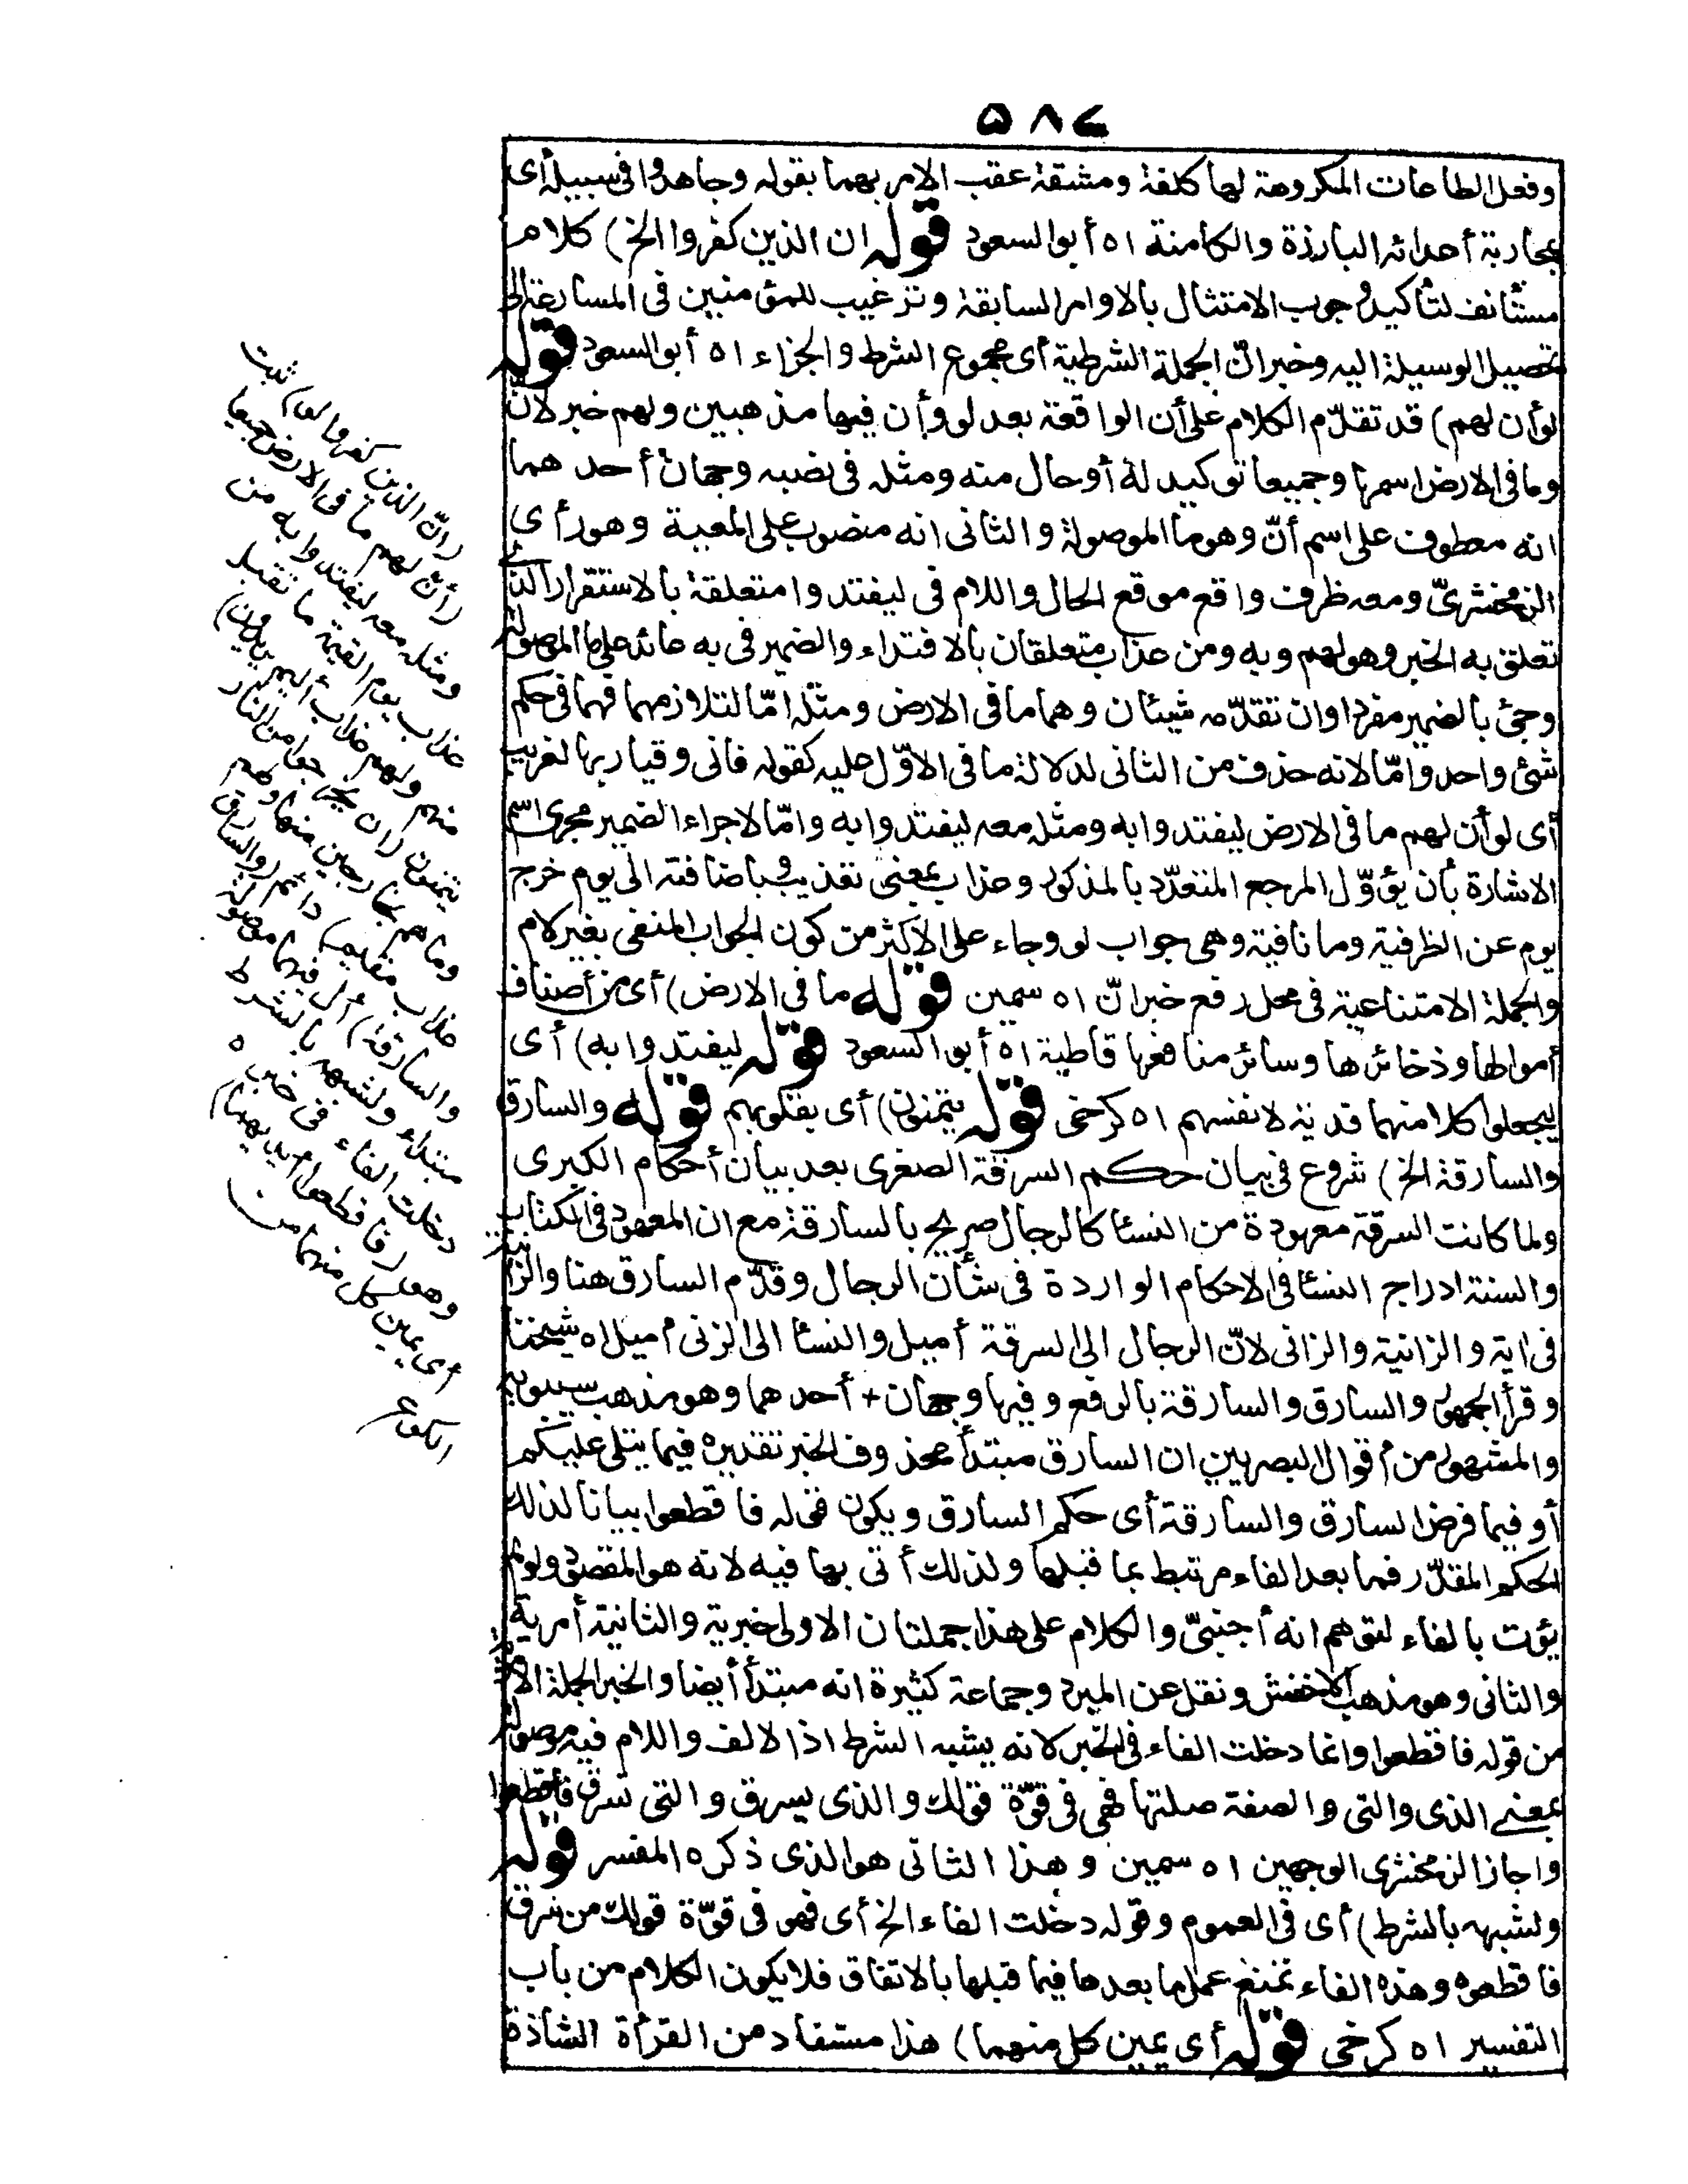 ٥٨٤
وفعل الطاعات المكروهة لها كلفة ومشقة عقب الامر بهما بقوله وجاهدوا فى سبيله أى
بمحاربة أعدائه البارزة والكامنة اه أبو السعود قوله ان الذين كفروا الخ) كلام
مستأنف لتأكيد وجوب الامتثال بالاوامر السابقة وترغيب للمؤمنين فى المسارعة الى
تحصيل الوسيلة اليه وخبر انّ الجملة الشرطية أى مجموع الشرط والجزاء اه أبو السعود قوله
لو أن لهم) قد تقدّم الكلام على أن الواقعة بعد لو وأن فيها مذهبين ولهم خبر لأنّ
وما فى الارض اسمها وجميعا توكيد له أو حال منه ومثله فى نصبه وجهان أحدهما
انه معطوف على اسم أنّ وهو ما الموصولة والثانى انه منصوب على المعية وهو رأى
الزمخشرىّ ومعه ظرف واقع موقع الحال واللام فى ليفتدوا متعلقة بالاستقرار الذى
تعلق به الخبر وهو لهم وبه ومن عذاب متعلقان بالافتداء والضمير فى به عائد على ما الموصولة
وجئ بالضمير مفردا وان تقدّمه شيئان وهما ما فى الارض ومثله امّا لتلازمهما فهما فى حكم
شئ واحد وامّا لانه حذف من الثانى لدلالة ما فى الاوّل عليه كقوله فانى وقيار بها لغريب
أى لو أن لهم ما فى الارض ليفتدوا به ومثله معه ليفتدوا به وامّا لاجراء الضمير مجرى اسم
الاشارة بأن يؤوّل المرجع المتعدّد بالمذكور وعذاب بمعنى تعذيب وباضافته الى يوم خرج
يوم عن الظرفية وما نافية وهى جواب لو وجاء على الاكثر من كون الجواب المنفى بغير لام
والجملة الامتناعية فى محل رفع خبر انّ اه سمين قوله ما فى الارض) أى من أصناف
أموالها وذخائرها وسائر منافعها قاطبة اه أبو السعود قوله ليفتدوا به) أى
ليجعلوا كلا منهما فدية لانفسهم اه كرخى قوله يتمنون) أى بقلوبهم قوله والسارق
والسارقة الخ) شروع فى بيان حكم السرقة الصغرى بعد بيان أحكام الكبرى
ولما كانت السرقة معهودة من النسا كالرجال صرح بالسارقة مع ان المعهود فى الكتاب
والسنة ادراج النسا فى الاحكام الواردة فى شأن الرجال وقدّم السارق هنا والزانية
فى اية والزانية والزانى لانّ الرجال الى السرقة أميل والنسا الى الزنى أميل اه شيخنا
وقرأ الجمهور والسارق والسارقة بالرفع وفيها وجهان + أحدهما وهو مذهب سيبويه
والمشهور من أقوال البصريين ان السارق مبتدأ محذوف الخبر تقديره فيما يتلى عليكم
أو فيما فرض السارق والسارقة أى حكم السارق ويكون قوله فاقطعوا بيانا لذلك
الحكم المقدّر فما بعد الفاء مرتبط بما قبلها ولذلك أتى بها فيه لانه هو المقصود ولو لم
يؤت بالفاء لتوهم انه أجنبىّ والكلام على هذا جملتان الاولى خبرية والثانية أمرية
والثانى وهو مذهب الاخفش ونقل عن المبرد وجماعة كثيرة انه مبتدأ أيضا والخبر الجملة الامرية
من قوله فاقطعوا وانما دخلت الفاء فى الخبر لانه يشبه الشرط اذ الالف واللام فيه موصولة
بمعنى الذى والتى والصفة صلتها فهى فى قوّة قولك والذى يسرق والتى تسرق فاقطعوا
واجاز الزمخشرى الوجهين اه سمين وهذا الثانى هو الذى ذكره المفسر قوله
ولشبهه بالشرط) أى فى العموم وقوله دخلت الفاء الخ أى فهو فى قوّة قولك من سرق
فاقطعوه وهذه الفاء تمنع عمل ما بعدها فيما قبلها بالاتفاق فلا يكون الكلام من باب
التفسير اه كرخى قوله أى يمين كل منهما) هذا مستفاد من القرأة الشاذة
(انّ الذين كفروا لو) ثبت
(أنّ لهم ما فى الارض جميعا
ومثله معه ليفتدوا به من
عذاب يوم القيمة ما تقبل
منهم ولهم عذاب أليم يريدون)
يتمنون (ان يخرجوا من النار
وما هم بخارجين منها ولهم
عذاب مقيم) دائم (والسارق
والسارقة) أل فيهما موصولة
مبتداء ولشبهه بالشرط
دخلت الفاء فى خبره
وهو (فاقطعوا أيديهما)
أى يمين كل منهما من
الكوع